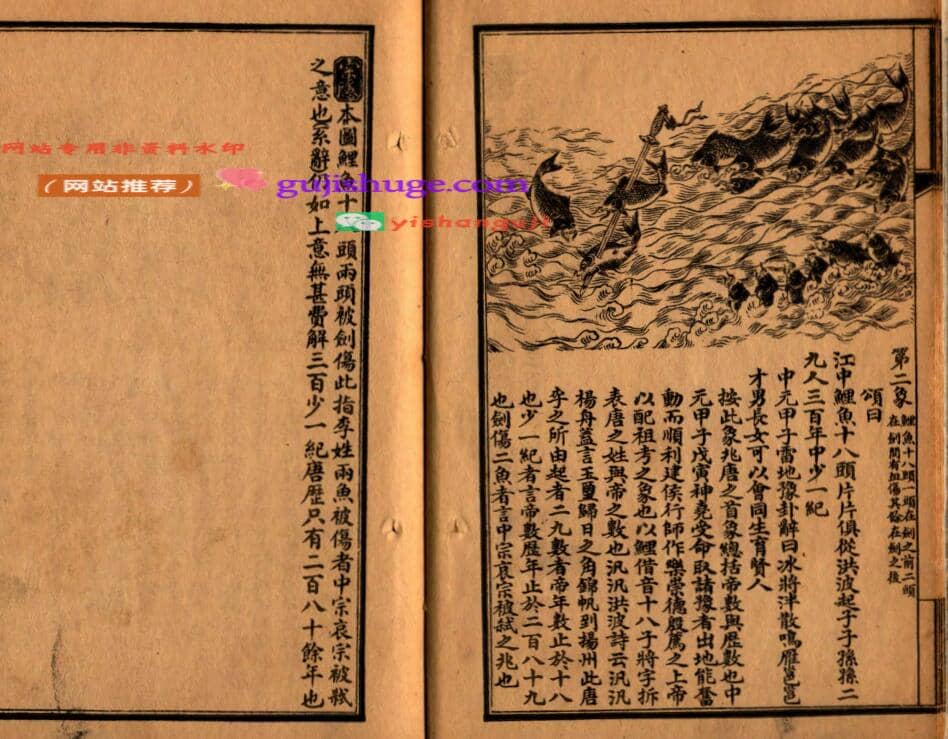 第二象
鯉魚十八頭一頭在劍之前二頭
在劍間有扭傷其餘在劍之後
頌曰
江中鯉魚十八頭片片俱從洪波起子子孫孫二
九人三百年中少一紀
中元甲子雷地豫卦辭曰冰將泮散鳴雁邕邕
才男長女可以會同生育賢人
按此象兆唐之首象總括帝數與歷數也中
元甲子戊寅神堯受命取諸豫者出地能奮
動而順利建侯行師作樂崇德殷薦之上帝
以配祖考之象也以鯉借音十八子將字拆
表唐之姓與帝之數也汎汎洪波詩云汎汎
楊舟蓋言玉璽歸日之角錦帆到揚州此唐
李之所由起者二九數者帝年數止於十八
也少一紀者言帝數歷年止於二百八十九
也劍傷二魚者言中宗哀宗被弒之兆也
本圖鯉魚十 頭兩頭被劍傷此指李姓兩魚被傷者中宗哀宗被弒
之意也系辭 如上意無甚費解三百少一紀唐歷只有二百八十餘年也
网站专用非资料水印
(网站推荐)
gujishuge.com
yishanguji